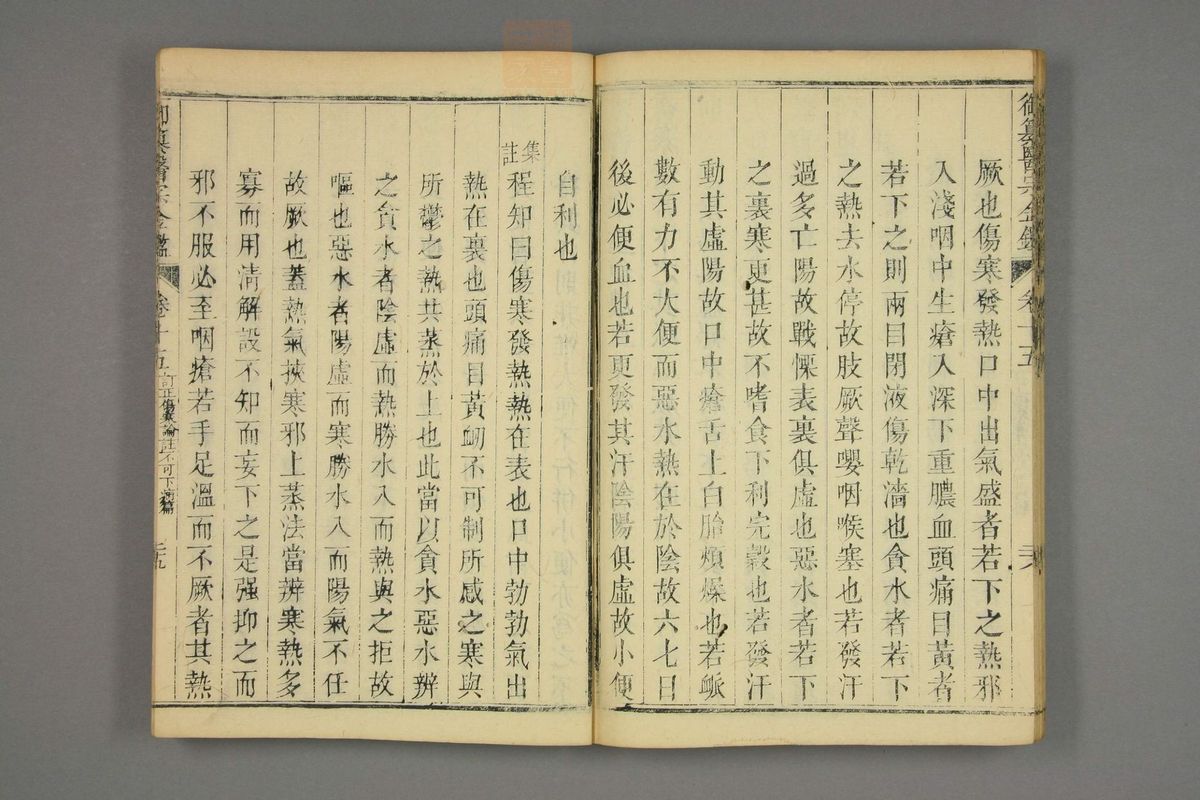 御纂醫宗金鑑 卷十五
厥也傷寒發熱口中出氣盛者若下之熱邪
入淺咽中生瘡入深下重膿血頭痛目黃者
若下之則兩目閉液傷乾濇也貪水者若下
之熱去水停故肢厥聲嚶咽喉塞也若發汗
過多亡陽故戰慄表裏俱虛也惡水者若下
之裏寒更甚故不嗜食下利完穀也若發汗
動其虛陽故口中瘡舌上白胎煩燥也若脈
數有力不大便而惡水熱在於陰故六七日
後必便血也若更發其汗陰陽俱虛故小便
自利也
集註
程知曰傷寒發熱熱在表也口中勃勃氣出
熱在裏也頭痛目黃衄不可制所感之寒與
所鬱之熱共蒸於上也此當以貪水惡水辨
之貪水者陰虛而熱勝水入而熱與之拒故
嘔也惡水者陽虛而寒勝水入而陽氣不任
故厥也蓋熱氣挾寒邪上蒸法當辨寒熱多
寡而用清解設不知而妄下之是强抑之而
邪不服必至咽瘡若手足溫而不厥者其熱
御纂醫宗金鑑 卷十五 訂正傷寒論註不可下病篇